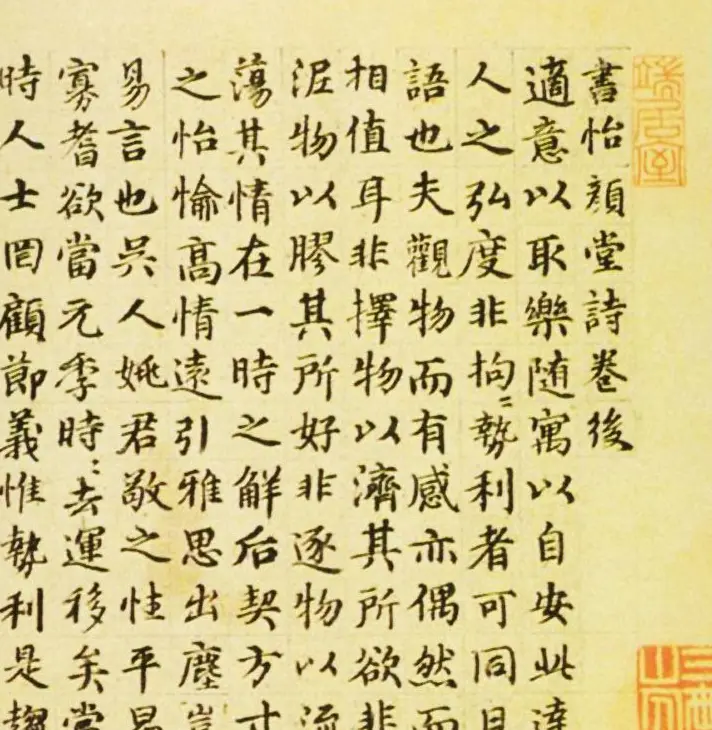 端居室
書怡顏堂詩卷後
適意以取樂随寓以自安此達
人之弘度非拘〻勢利者可同日
語也夫觀物而有感亦偶然而
相值耳非擇物以濟其所欲非
泥物以膠其所好非逐物以流
蕩其情在一時之解后契方寸
之怡愉高情遠引雅思出塵豈
易言也吳人姚君敬之性平易
寡耆欲當元季時〻去運移矣當
時人士罔顧節義惟勢利是趨